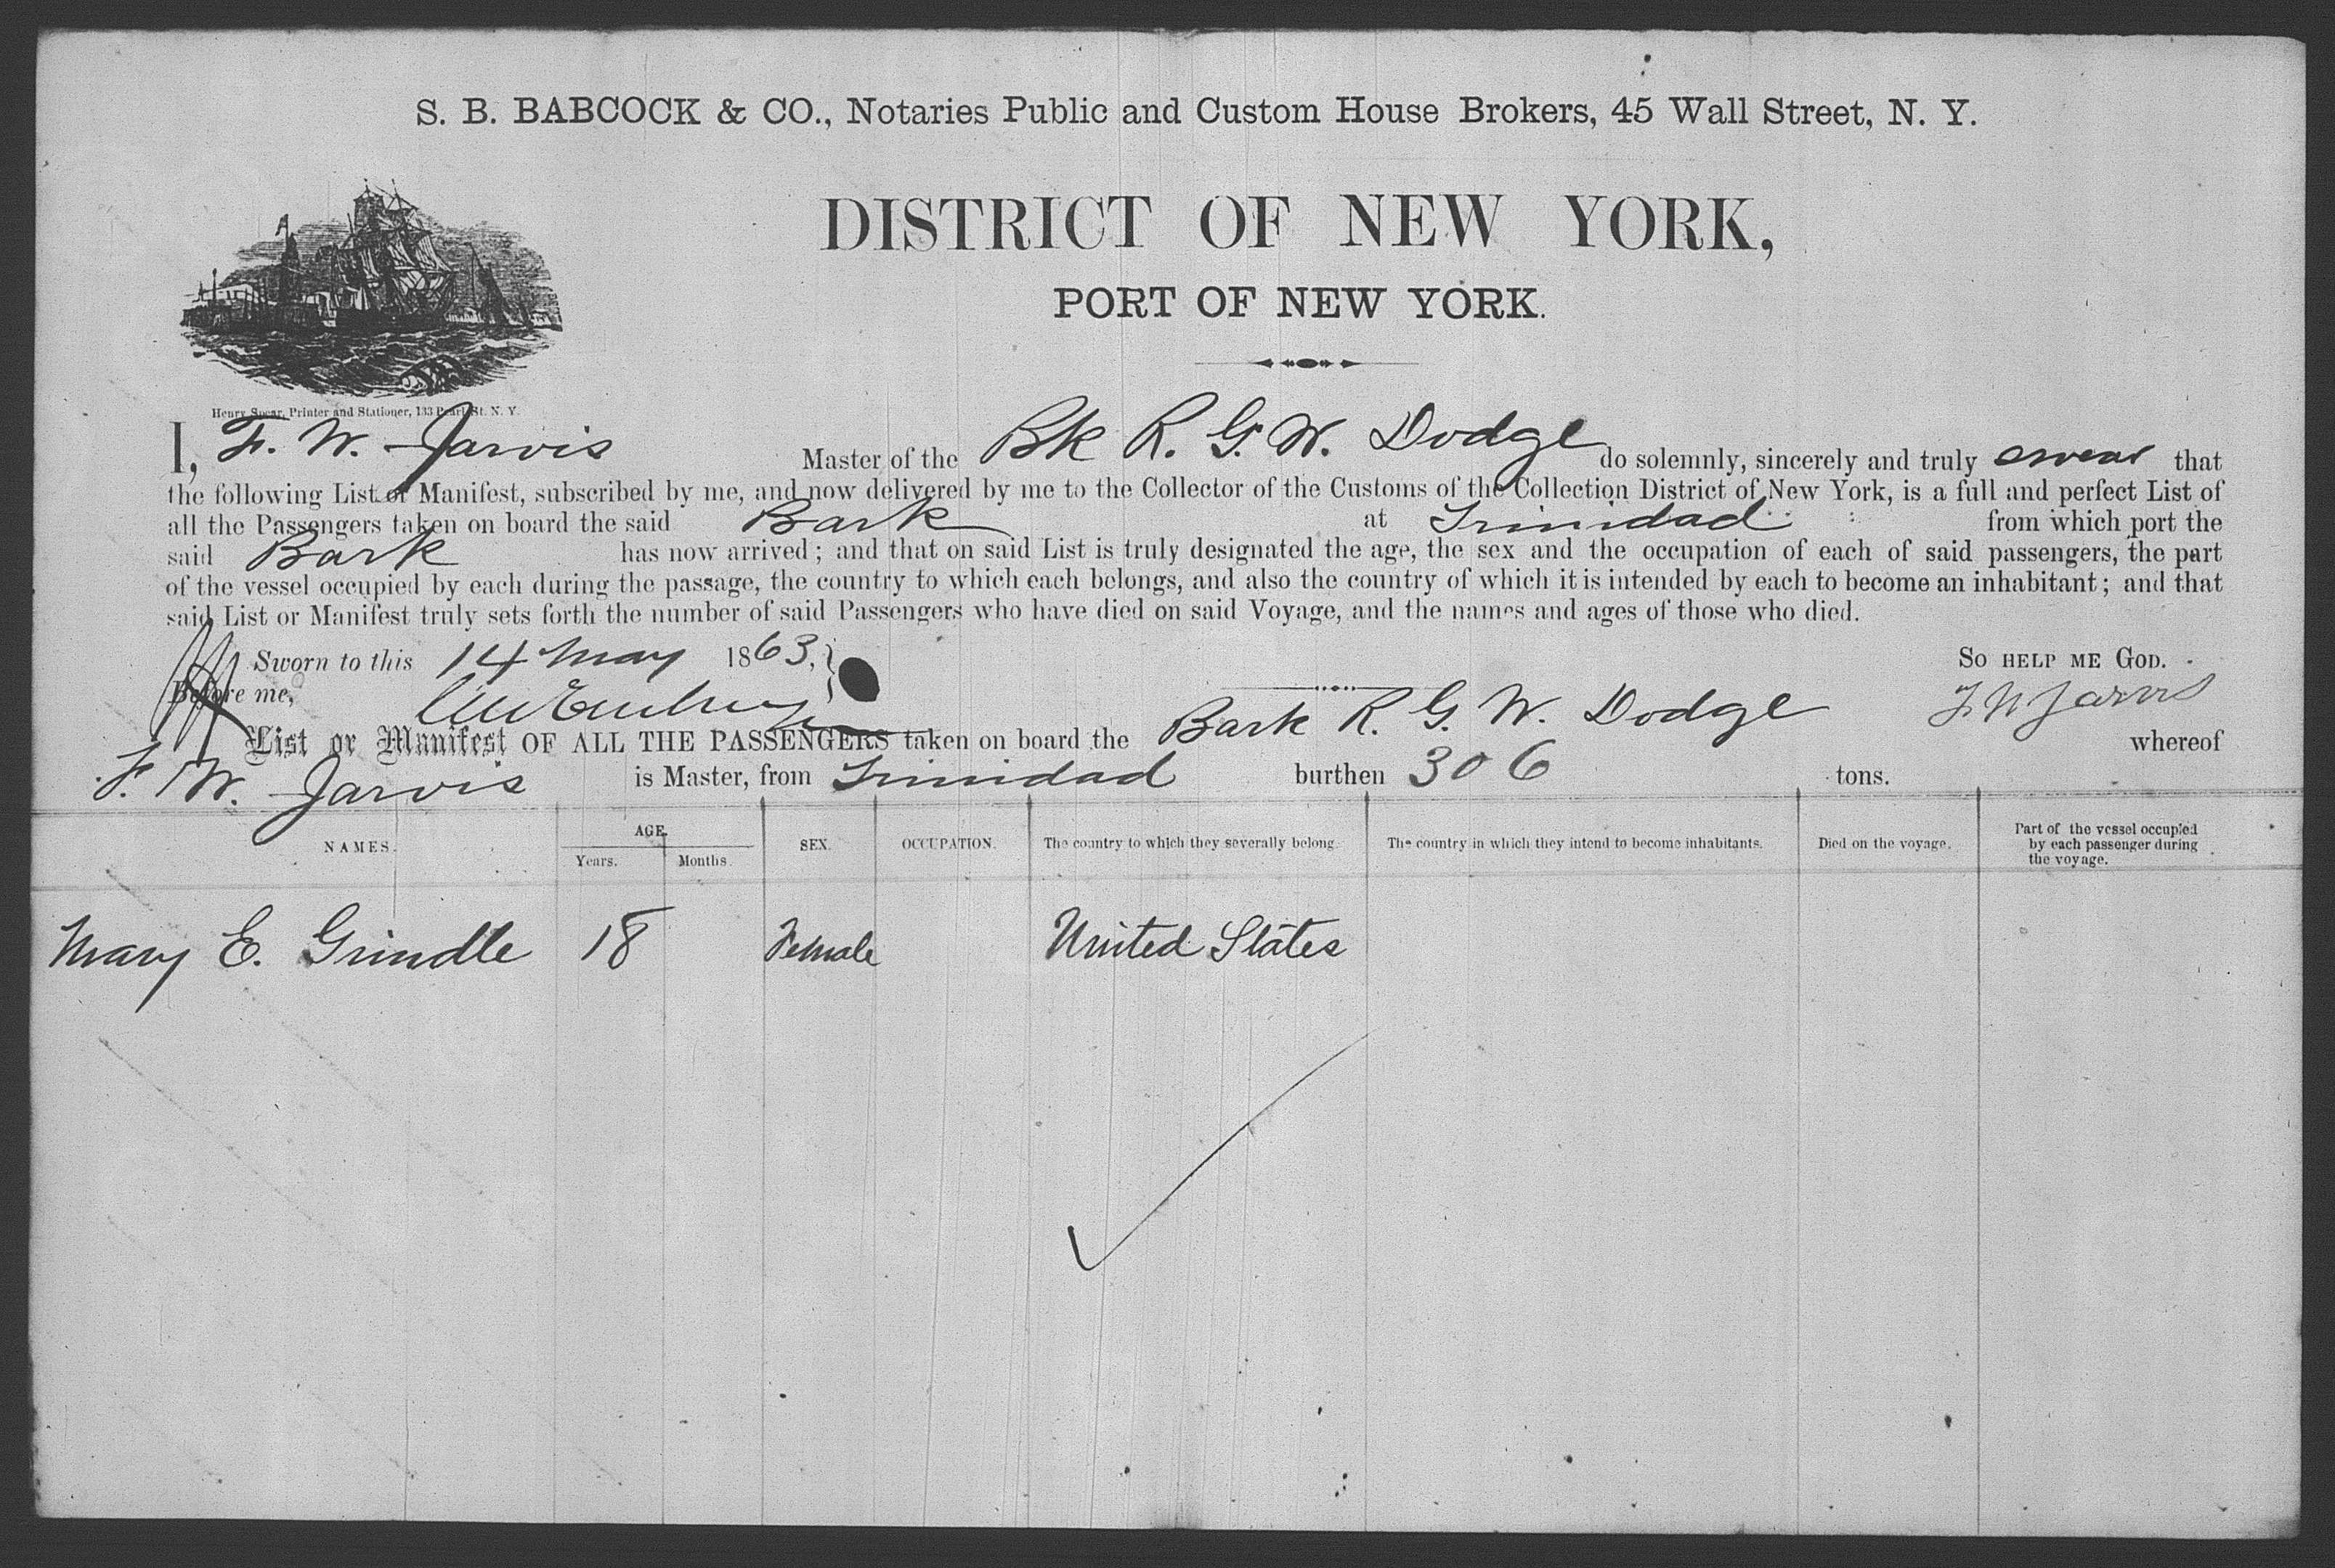 S. B. BABCOCK & CO., Notaries Public and Custom House Brokers, 45 Wall Street, N. Y.
DISTRICT OF NEW YORK,
PORT OF NEW YORK.
Henry Spear, Printer and Stationer, 133 Pearl St. N. Y.
I, F. W. Jarvis Master of the Bk R. G. W. Dodge do solemnly, sincerely and truly swear that
the following List or Manifest, subscribed by me, and now delivered by me to the Collector of the Customs of the Collection District of New York, is a full and perfect List of
all the Passengers taken on board the said Bark at Trinidad from which port the
said Bark has now arrived; and that on said List is truly designated the age, the sex and the occupation of each of said passengers, the part
of the vessel occupied by each during the passage, the country to which each belongs, and also the country of which it is intended by each to become an inhabitant; and that
said List or Manifest truly sets forth the number of said Passengers who have died on said Voyage, and the names and ages of those who died.
Sworn to this 14 May 1863, So help me God.
Before me, F W Jarvis
List or Manifest OF ALL THE PASSENGERS taken on board the Bark R. G. W. Dodge whereof
F. W. Jarvis is Master, from Trinidad burthen 306 tons.
NAMES. AGE. Years. Months. SEX. OCCUPATION. The country to which they severally belong. The country in which they intend to become inhabitants. Died on the voyage. Part of the vessel occupied by each passenger during the voyage.
Mary E. Grindle 18 Female United States